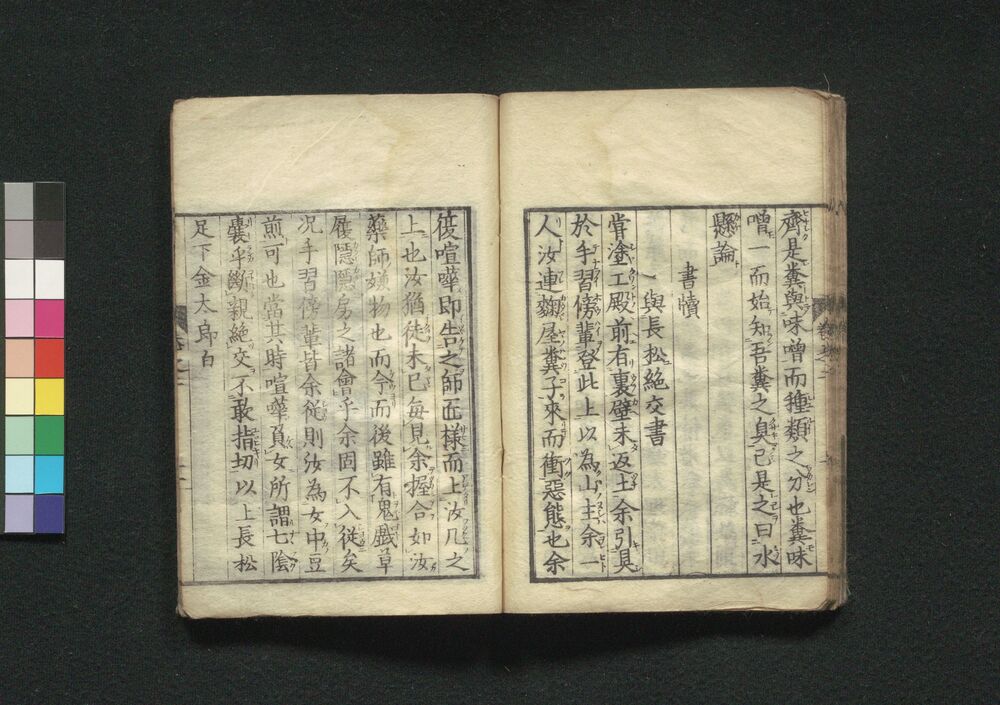 齊是糞與味噌而種類之分也糞味
噌一而始知吾糞之臭己是之曰水
懸論
書牘
與長松絶交書
甞塗工殿前有裏壁未返土余引具
於手習傍輩登此上以為山主余一
人汝連麹屋糞子來而衝惡態也余
後喧嘩即告之師匠様而上汝几之
上也汝猶徒未已毎見余握合如汝
藥師嫌物也而今而後雖有鬼戯草
履隱隱房之諸會乎余固不入從矣
况手習傍輩皆余從則汝為女中豆
煎可也當其時喧嘩負女所謂七陰
嚢乎斷親絶交不敢指切以上長松
足下金太郎白